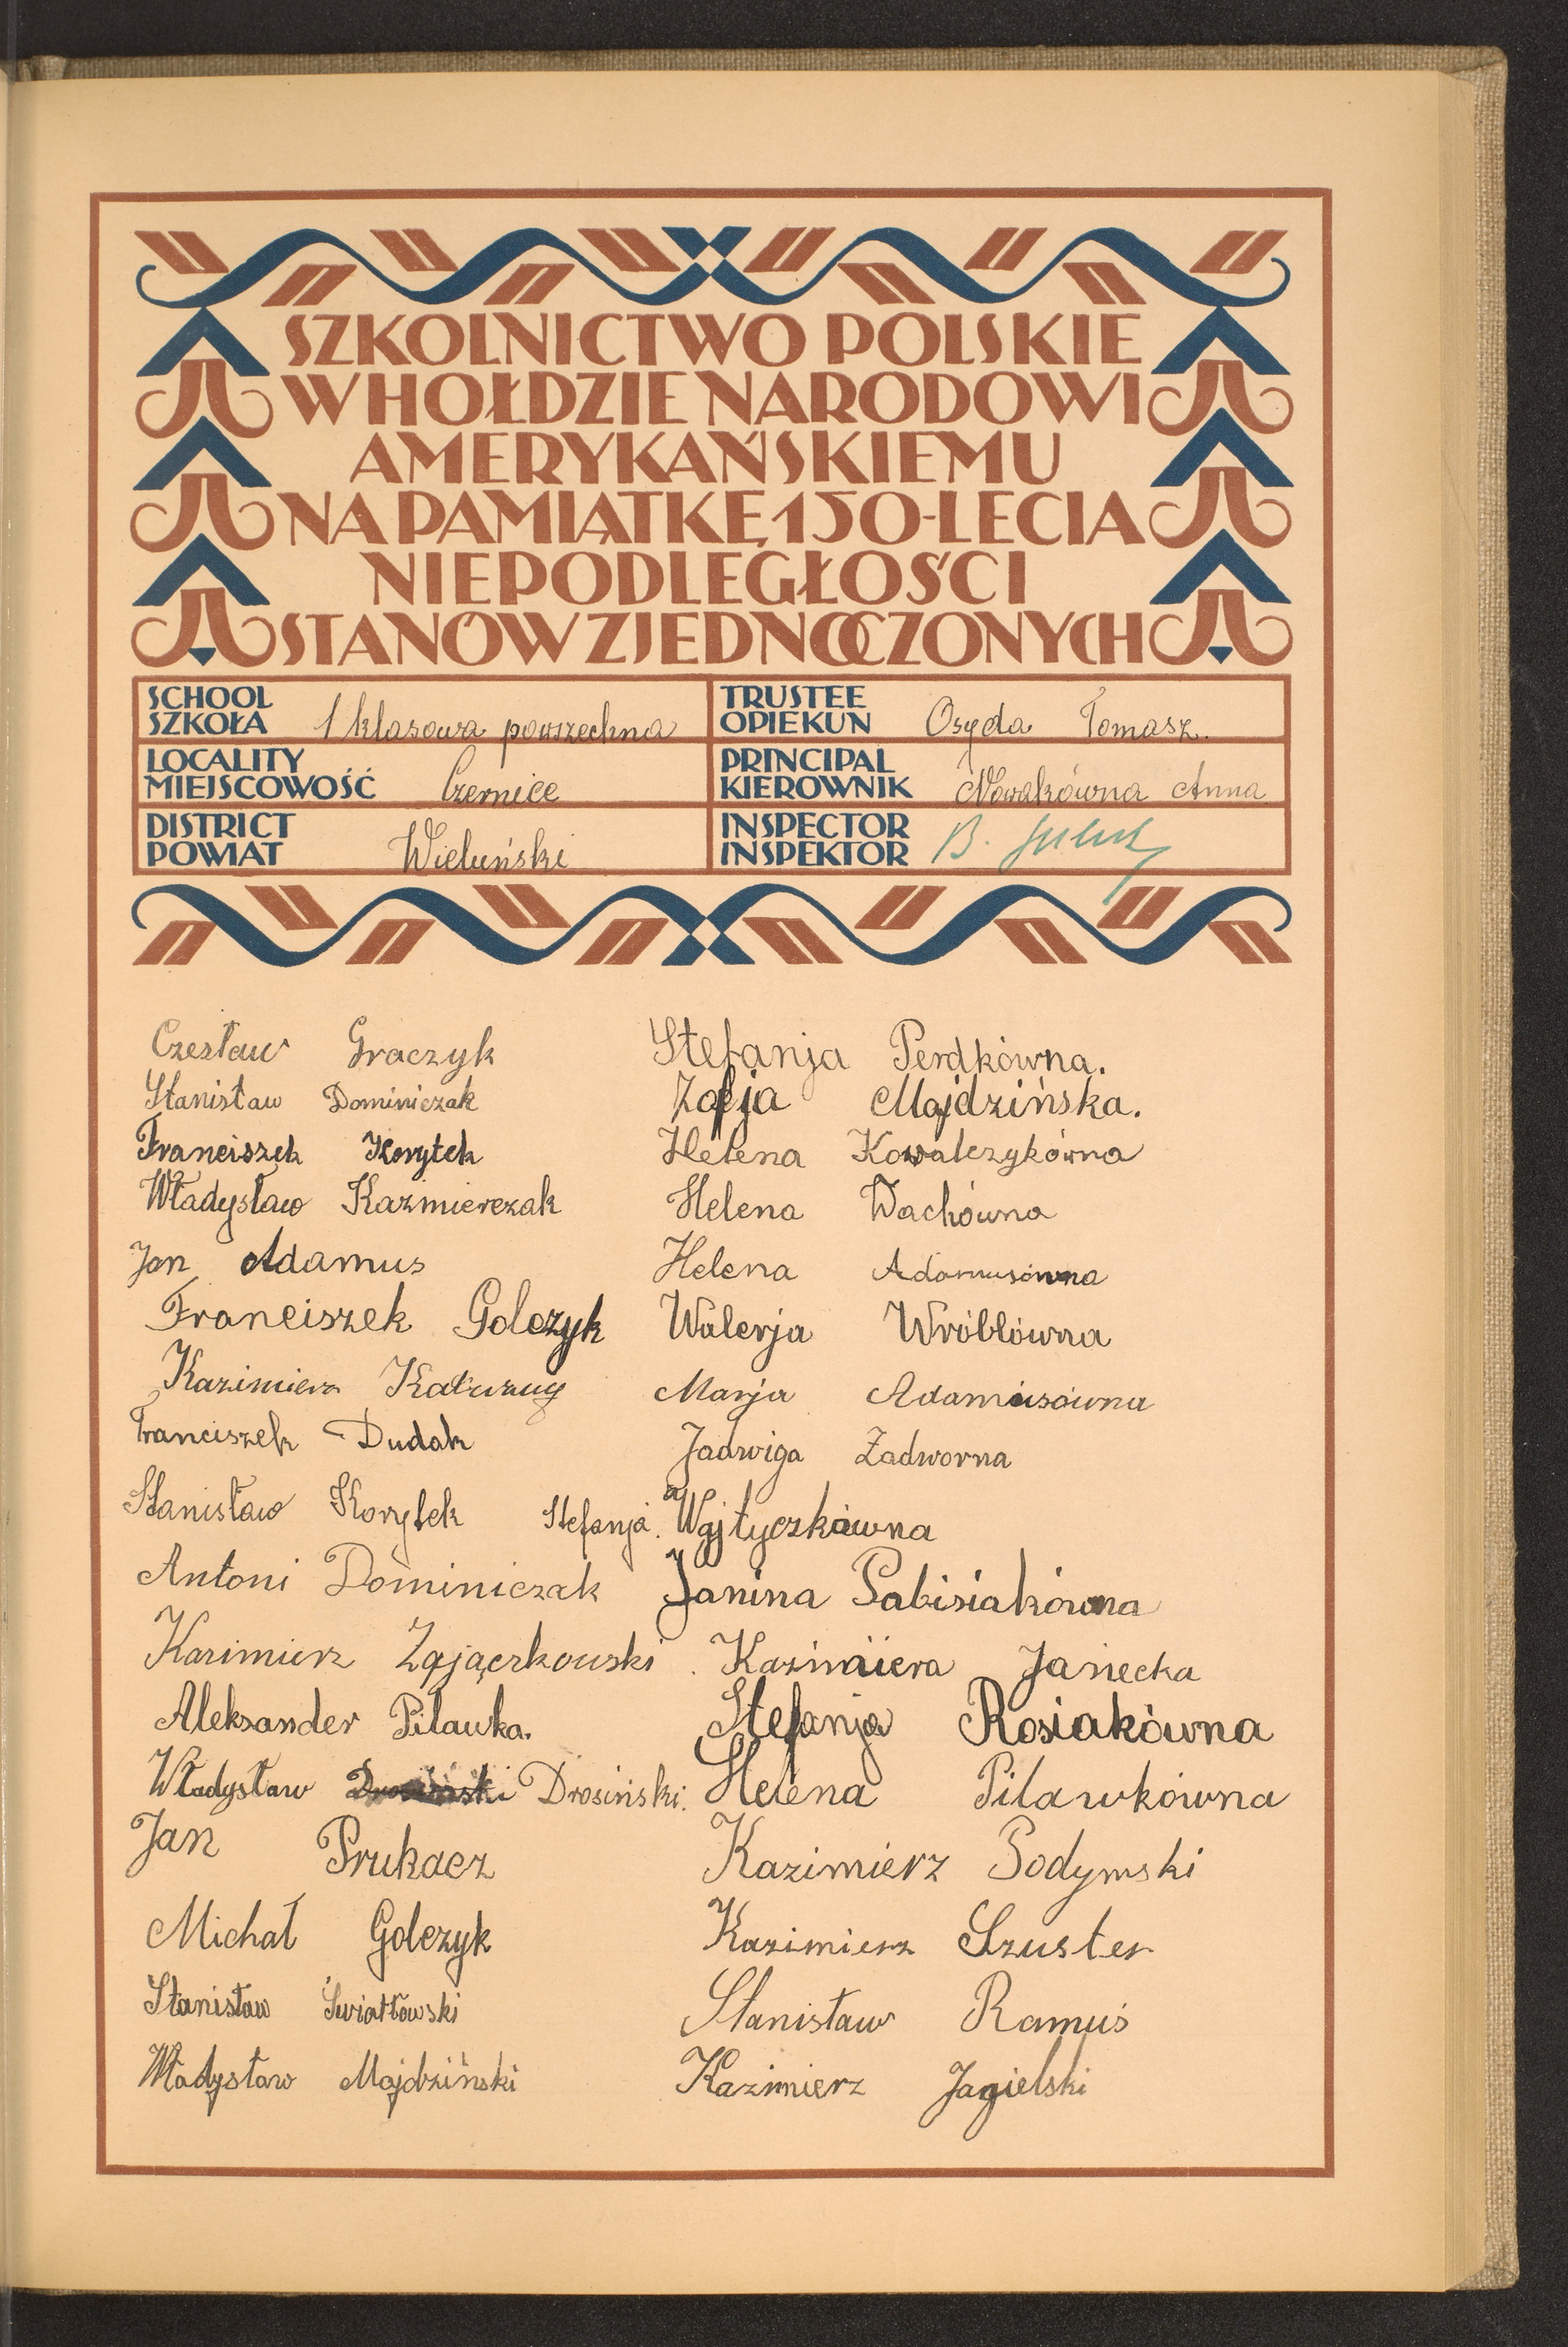 SZKOLNICTWO POLSKIE
W HOŁDZIE NARODOWI
AMERYKAŃSKIEMU
NA PAMIĄTKĘ 150-LECIA
NIEPODLEGŁOŚCI
STANÓW ZJEDNOCZONYCH
SCHOOL
SZKOŁA 1 klasowa powszechna
LOCALITY
MIEJSCOWOŚĆ Czernice
DISTRICT
POWIAT Wieluński
TRUSTEE
OPIEKUN Osyda Tomasz.
PRINCIPAL
KIEROWNIK Nowakówna Anna
INSPECTOR
INSPEKTOR B.
Czesław Graczyk
Stanisław Dominiczak
Franciszek Korytek
Władysław Kazmierczak
Jan Adamus
Franciszek Golczyk
Kazimierz Kałuzny
Franciszek Dudak
Stanisław Korytek
Antoni Dominiczak
Kazimierz Zajączkowski
Aleksander Pilawka.
Władysław Drosiński.
Jan Prukacz
Michał Golczyk
Stanisław Światłowski
Władysław Majdziński
Stefanja Perdkówna.
Zofja Majdzińska.
Helena Kowalczykówna
Helena Wachówna
Helena Adamusówna
Walerja Wróblówna
Marja Adamusówna
Jadwiga Zadworna
Stefanja Wojtyczkówna
Janina Pabisiakówna
Kazimiera Janecka
Stefanja Rosiakówna
Helena Pilawkówna
Kazimierz Podymski
Kazimierz Szuster
Stanisław Ramuś
Kazimierz Jagielski